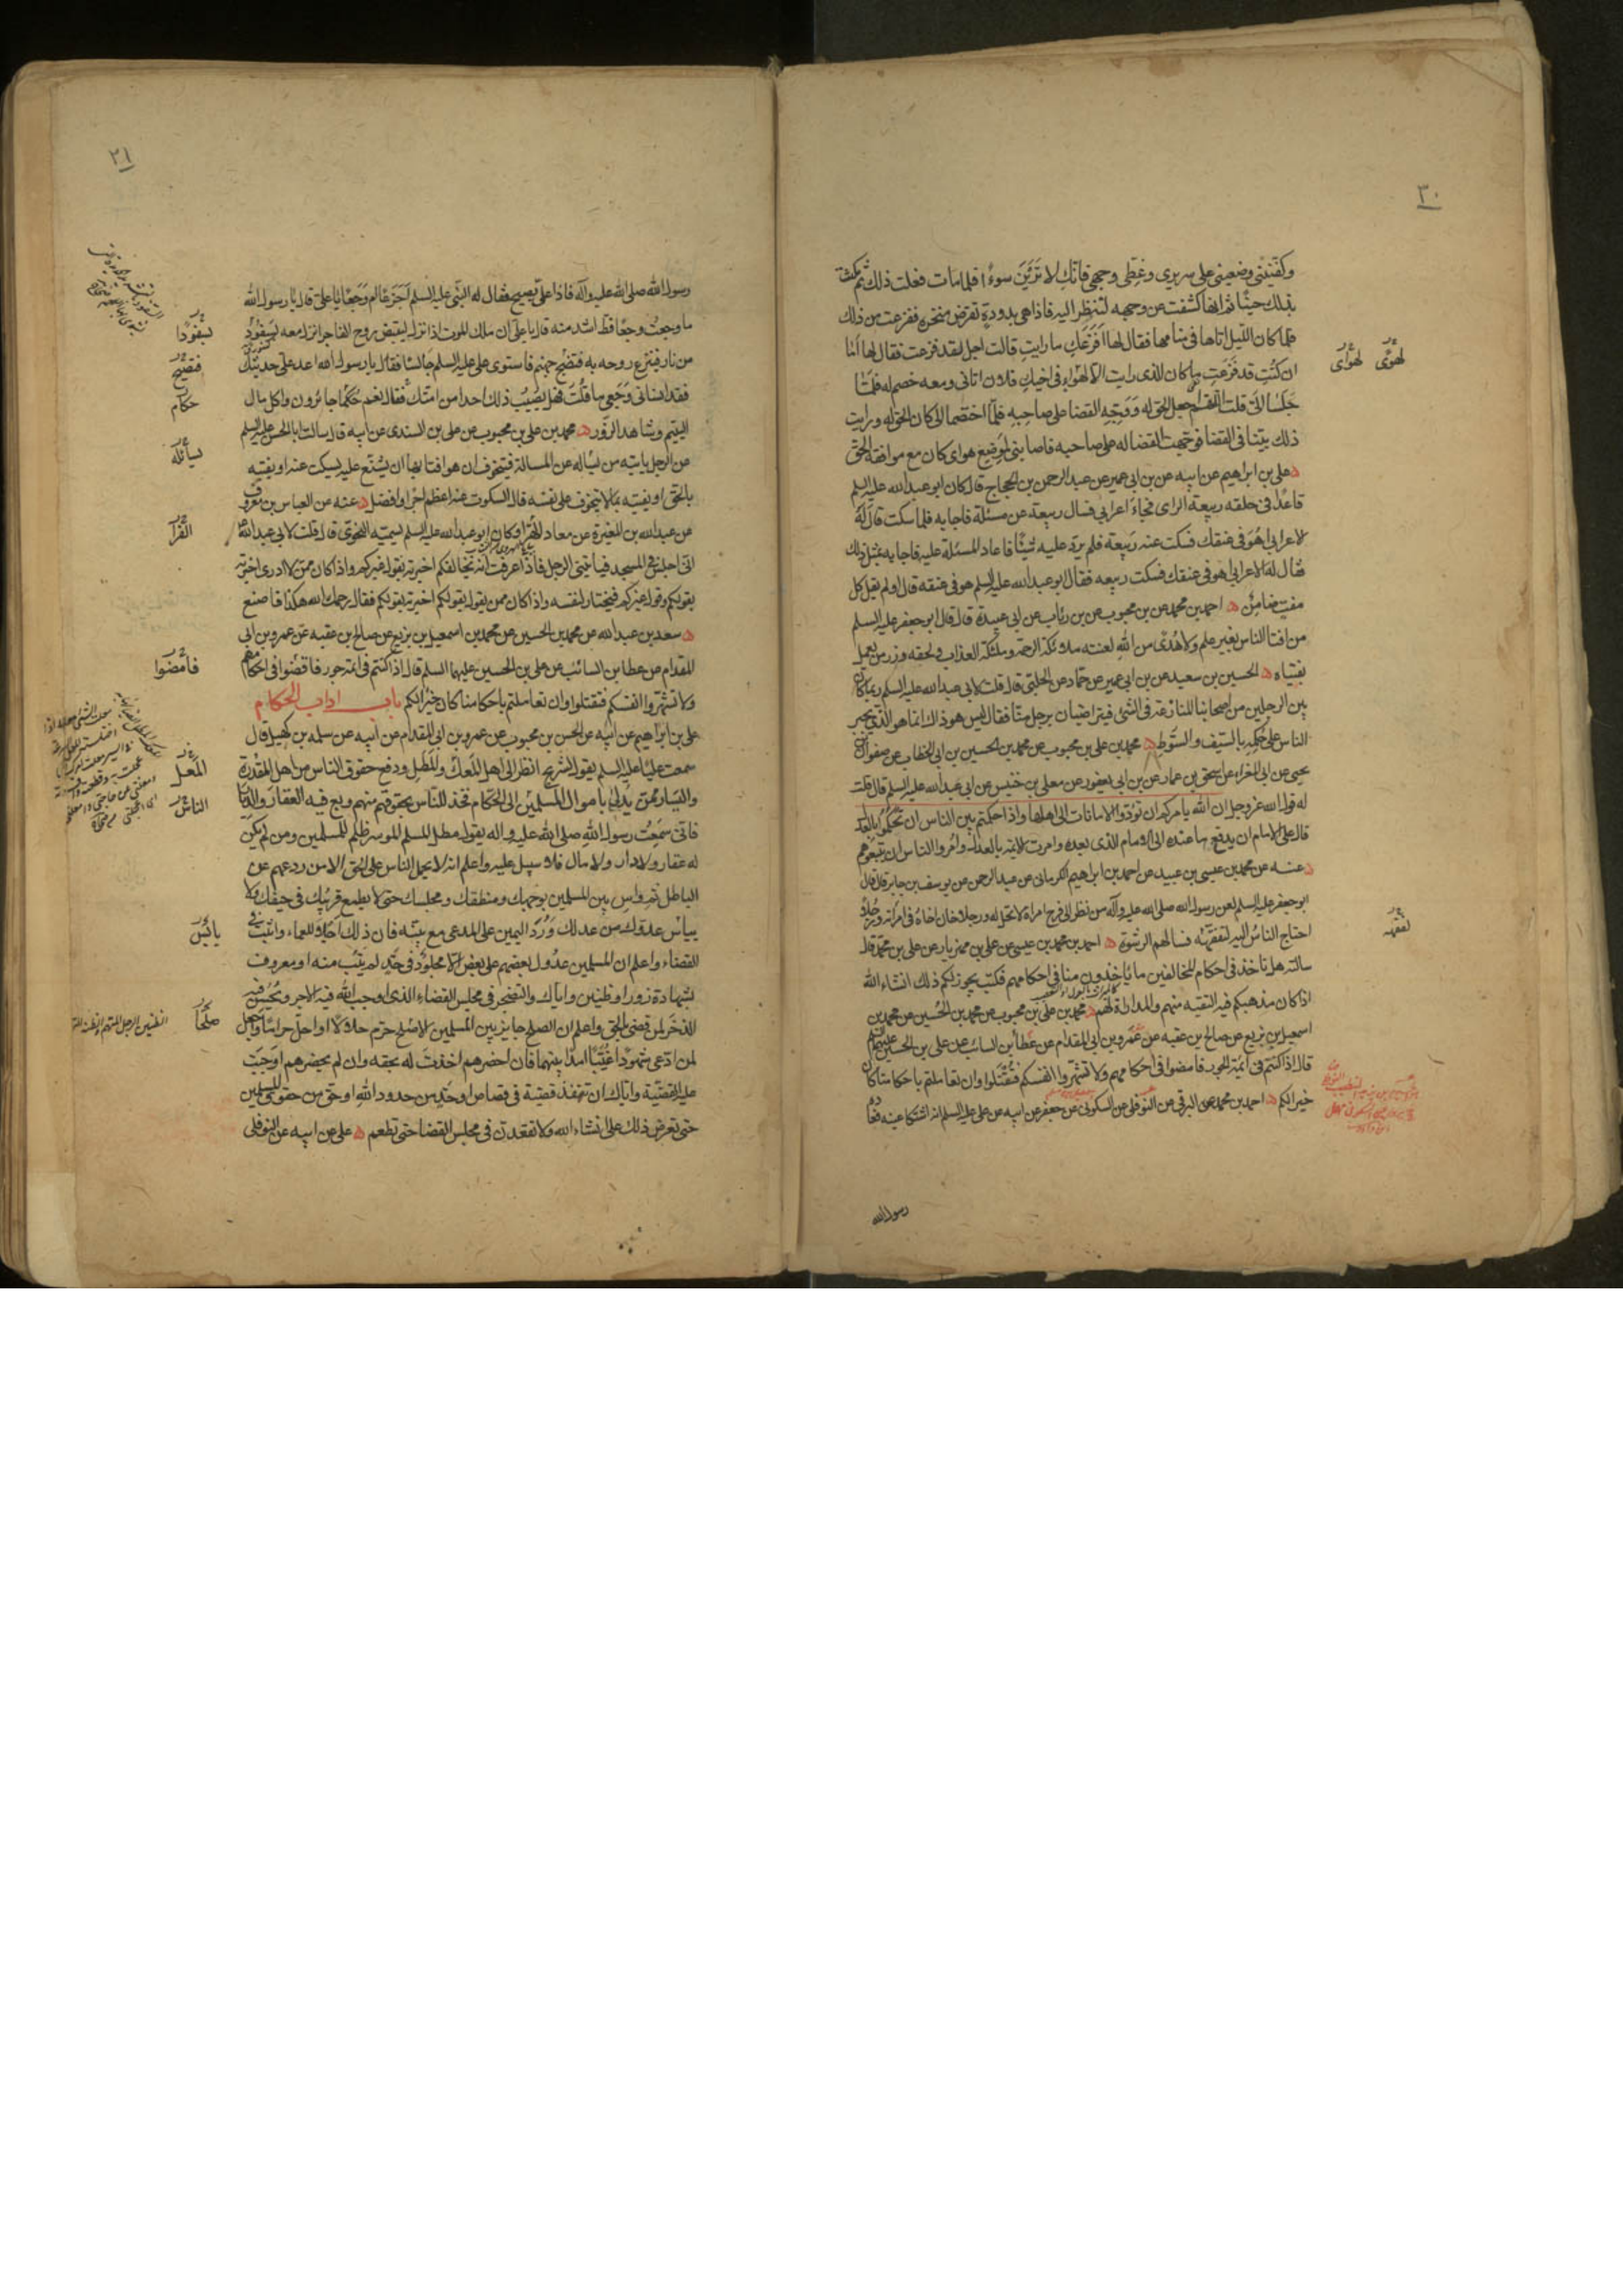 ٣٠
وكفنيني وضعيني على سريري وغطي وجهي فانك لا ترين سوءا فلما مات فعلت ذلك ثم مكثت
بذلك حينا ثم انها كشفت عن وجهه لتنظر اليه فاذا هي بدودة تقرض منخره ففزعت من ذلك
فلما كان الليل اتاها في منامها فقال لها افزعك ما رايت قالت اجل لقد فزعت فقال لها اما
ان كنت قد فزعت ما كان الذي رايت الا لهواي في اخيك فلان اتاني ومعه خصم له فلما
جلسا الي قلت اللهم اجعل الحق له ووجه القضا على صاحبه فلما اختصما الي كان الحق له ورايت
ذلك بينا في القضا فوجهت القضا له على صاحبه فاصابني لموضع هواي كان مع موافقة الحق
علي بن ابراهيم عن ابيه عن بن ابي عمير عن عبد الرحمن بن الحجاج قال كان ابو عبد الله عليه السلم
قاعدا في حلقه ربيعة الراي فجاء اعرابي فسال ربيعة عن مسئلة فاجابه فلما سكت قال له
الاعرابي هو في عنقك فسكت عنه ربيعة فلم يرد عليه شيئا فاعاد المسئلة عليه فاجابه بمثل ذلك
فقال له الاعرابي هو في عنقك فسكت ربيعه فقال ابو عبد الله عليه السلم هو في عنقه قال اولم يقل كل
مفت ضامن ه احمد بن محمد عن بن محبوب عن بن رئاب عن ابي عبيدة قال قال ابو جعفر عليه السلم
من افتا الناس بغير علم ولا هدى من الله لعنته ملائكة الرحمة وملئكة العذاب ولحقه وزر من يعمل
بفتياه ه الحسين بن سعيد عن بن ابي عمير عن حماد عن الحلبي قال قلت لابي عبد الله عليه السلم ربما كان
بين الرجلين من اصحابنا المنازعة في الشئ فيتراضيان برجل منا فقال ليس هو ذلك انما هو الذي يجبر
الناس على حكمه بالسيف والسوط ه محمد بن علي بن محبوب عن محمد بن الحسين بن ابي الخطاب عن صفوان بن
يحيى عن ابي المغراء عن اسحق بن عمار عن بن ابي يعفور عن معلى بن خنيس عن ابي عبد الله عليه السلم قال قلت
له قول الله عز وجل ان الله يامركم ان تؤدوا الامانات الى اهلها واذا حكمتم بين الناس ان تحكموا بالعدل
قال على الامام ان يدفع ما عنده الى الامام الذي بعده وامرت الائمة بالعدل وامروا الناس ان يتبعوهم
ه عنه عن محمد بن عيسى بن عبيد عن احمد بن ابراهيم الكرماني عن عبد الرحمن عن يوسف بن جابر قال قال
ابو جعفر عليه السلم لعن رسول الله صلى الله عليه وآله من نظر الى فرج امراة لا تحل له ورجلا خان اخاه في امراته ورجلا
احتاج الناس اليه لتفقهه فسالهم الرشوة ه احمد بن محمد بن عيسى عن علي بن مهزيار عن علي بن محمد قال
سالته هل ناخذ في احكام المخالفين ما ياخذون منا في احكامهم فكتب يجوز لكم ذلك انشاء الله
اذا كان مذهبكم فيه التقية منهم والمداراة لهم ه محمد بن علي بن محبوب عن محمد بن الحسين عن محمد بن
اسمعيل بن بزيع عن صالح بن عقبه عن عمرو بن ابي المقدام عن عطا بن السائب عن علي بن الحسين عليهما السلم
قال اذا كنتم في ائمة الجور فامضوا في احكامهم ولا تشهروا انفسكم فتقتلوا وان تعاملتم باحكامنا كان
خيرا لكم ه احمد بن محمد عن البرقي عن النوفلي عن السكوني عن جعفر عن ابيه عن علي عليه السلم انه اشتكا عينه فعاده
رسول الله
لهوى لهواى
تفقهه
٣١
رسول الله صلى الله عليه وآله فاذا علي يصيح فقال له النبي عليه السلم اجزعا ام وجعا يا علي قال يا رسول الله
ما وجعت وجعا قط اشد منه قال يا علي ان ملك الموت اذا نزل ليقبض روح الفاجر انزل معه سفودا
من نار فينزع روحه به فتضج جهنم فاستوى علي عليه السلم جالسا فقال يا رسول الله اعد علي حديثك
فقد انساني وجعي ما قلت فهل يصيب ذلك احدا من امتك فقال نعم حكما جائرون واكل مال
اليتيم وشاهد الزور ه محمد بن علي بن محبوب عن علي بن السندي عن ابيه قال سالت ابا الحسن عليه السلم
عن الرجل ياتيه من يساله عن المسالة فيتخوف ان هو افتا بها ان يشنع عليه يسكت عنه او يفتيه
بالحق او يفتيه بما لا يتخوف على نفسه قال السكوت عنه اعظم اجرا وافضل ه عنه عن العباس بن معروف
عن عبد الله بن المغيرة عن معاذ الهراء وكان ابو عبد الله عليه السلم يسميه النحوي قال قلت لابي عبد الله
اني اجلس في المسجد فياتيني الرجل فاذا عرفت انه يخالفكم اخبرته بقول غيركم واذا كان ممن لا ادري اخبرته
بقولكم وقول غيركم فيختار لنفسه واذا كان ممن يقول بقولكم اخبرته بقولكم فقال رحمك الله هكذا فاصنع
ه سعد بن عبد الله عن محمد بن الحسين عن محمد بن اسمعيل بن بزيع عن صالح بن عقبه عن عمرو بن ابي
المقدام عن عطا بن السائب عن علي بن الحسين عليهما السلم قال اذا كنتم في ائمة جور فاقضوا في احكامهم
ولا تشهروا انفسكم فتقتلوا وان تعاملتم باحكامنا كان خيرا لكم باب اداب الحكام
علي بن ابراهيم عن ابيه عن الحسن بن محبوب عن عمرو بن ابي المقدام عن ابيه عن سلمه بن كهيل قال
سمعت عليا عليه السلم يقول لشريح انظر الى اهل المعك والمطل ودفع حقوق الناس من اهل المقدرة
واليسار ممن يدلي باموال المسلمين الى الحكام فخذ للناس بحقوقهم منهم وبع فيه العقار والديار
فاني سمعت رسول الله صلى الله عليه واله يقول مطل المسلم الموسر ظلم للمسلمين ومن لم يكن
له عقار ولا دار ولا مال فلا سبيل عليه واعلم انه لا يحمل الناس على الحق الا من ردعهم عن
الباطل ثم واس بين المسلمين بوجهك ومنطقك ومجلسك حتى لا يطمع قريبك في حيفك ولا
يياس عدوك من عدلك ورد اليمين على المدعي مع بينه فان ذلك اجلا للعماء واثبت في
القضاء واعلم ان المسلمين عدول بعضهم على بعض الا مجلود في حد لم يتب منه او معروف
بشهادة زور او ظنين واياك والتضجر في مجلس القضاء الذي اوجب الله فيه الاجر ويحسن فيه
الذخر لمن قضى بالحق واعلم ان الصلح جايز بين المسلمين الا صلح حرم حلالا او احل حراما واجعل
لمن ادعى شهودا غيبا امدا بينهما فان احضرهم اخذت له بحقه وان لم يحضرهم اوجبت
عليه القضية واياك ان تنفذ قضية في قصاص او حد من حدود الله او حق من حقوق المسلمين
حتى تعرض ذلك علي انشاء الله ولا تقعدن في مجلس القضا حتى تطعم ه علي عن ابيه عن النوفلي
سفودا
فتضج
حكام
يسائله
الفرا
فامضوا
المعل
الناس
يائس
صلحا